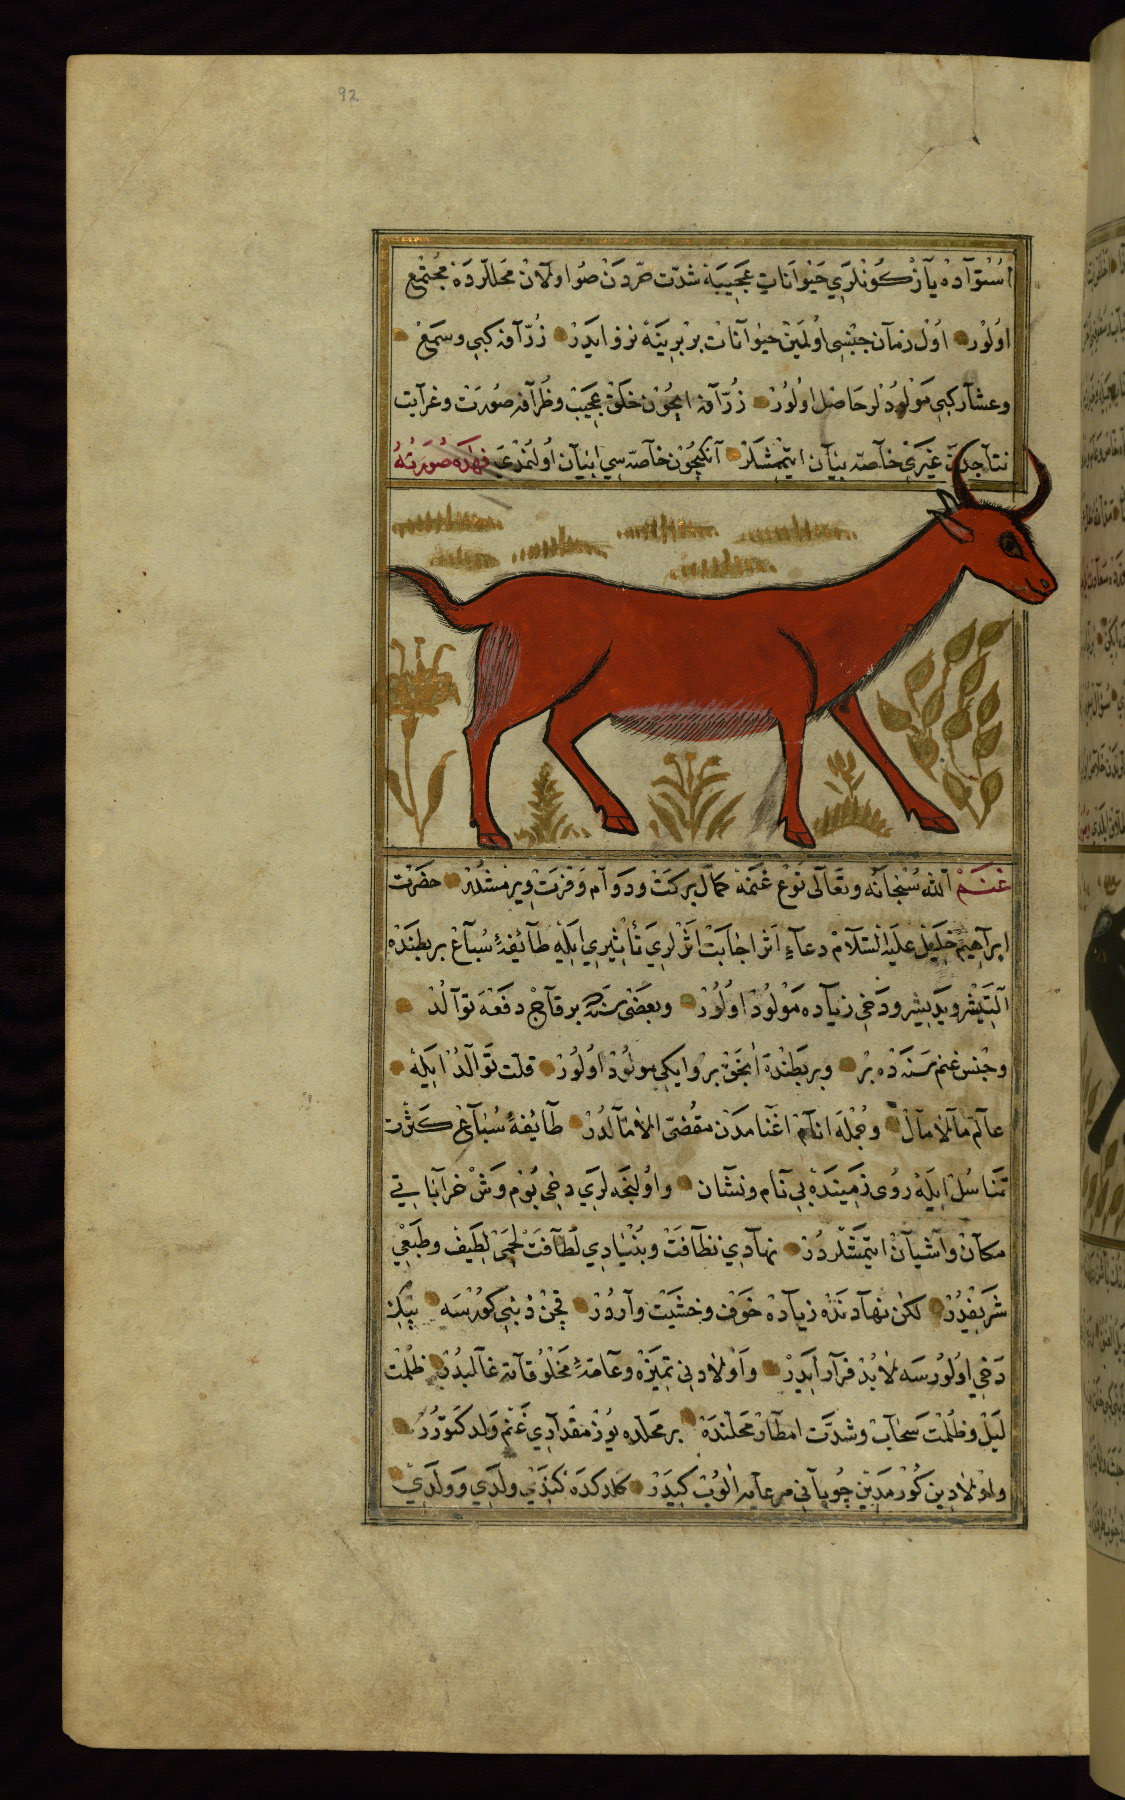 92
استواده یاز كونلری حیوانات عجیبه شدت حردن صو اولان محللرده مجتمع
اولور اول زمان جنسی اولمین حیوانات بربرینه نزو ایدر زرافه كبی وسمع
وعشار كبی مولودلر حاصل اولور زرافه ایچون خلق عجیب وظرافه صورت وغرابت
نتاجدن غیری خاصه بیان ایتمشلر آنكچون خاصه سی بیان اولنمدی فهذه صورته
غنم الله سبحانه وتعالی نوع غنمه كمال بركت ودوام وفرت ویرمشدر حضرت
ابراهیم خلیل علیه السلام دعاء اثر اجابت اثرلری تأثیری ایله طائفۀ سباع بر بطنده
آلتیشر ویدیشر ودخی زیاده مولود اولور وبعضی سنه بر قاج دفعه توالد
وجنس غنم سنه ده بر وبر بطنده انجق بر وایكی مولود اولور قلت توالد ایله
عالم مالامال وجمله انام اغنامدن مقضی الامالدر طائفۀ سباع كثرت
تناسل ایله روی زمینده بی نام ونشان واولنجه لری دخی بوم وش خراباتی
مكان وآشیان ایتمشلردر نهادی نظافت وبنیادی لطافت لحمی لطیف وطبعی
شریفدر لكن نهادنده زیاده خوف وخشیت واردر قچن ذئبی كورسه بیك
دخی اولورسه لابد فرار ایدر واولادنی تمیزه وعامۀ مخلوقاته غالبدر ظلمت
لیل وظلمت سحاب وشدت امطار محلنده بر محلده یوز مقداری غنم ولد كتورر
واولادین كورمدین چوبانی مرعایه الوب كیدر كلدكده كندی ولدی وولدی